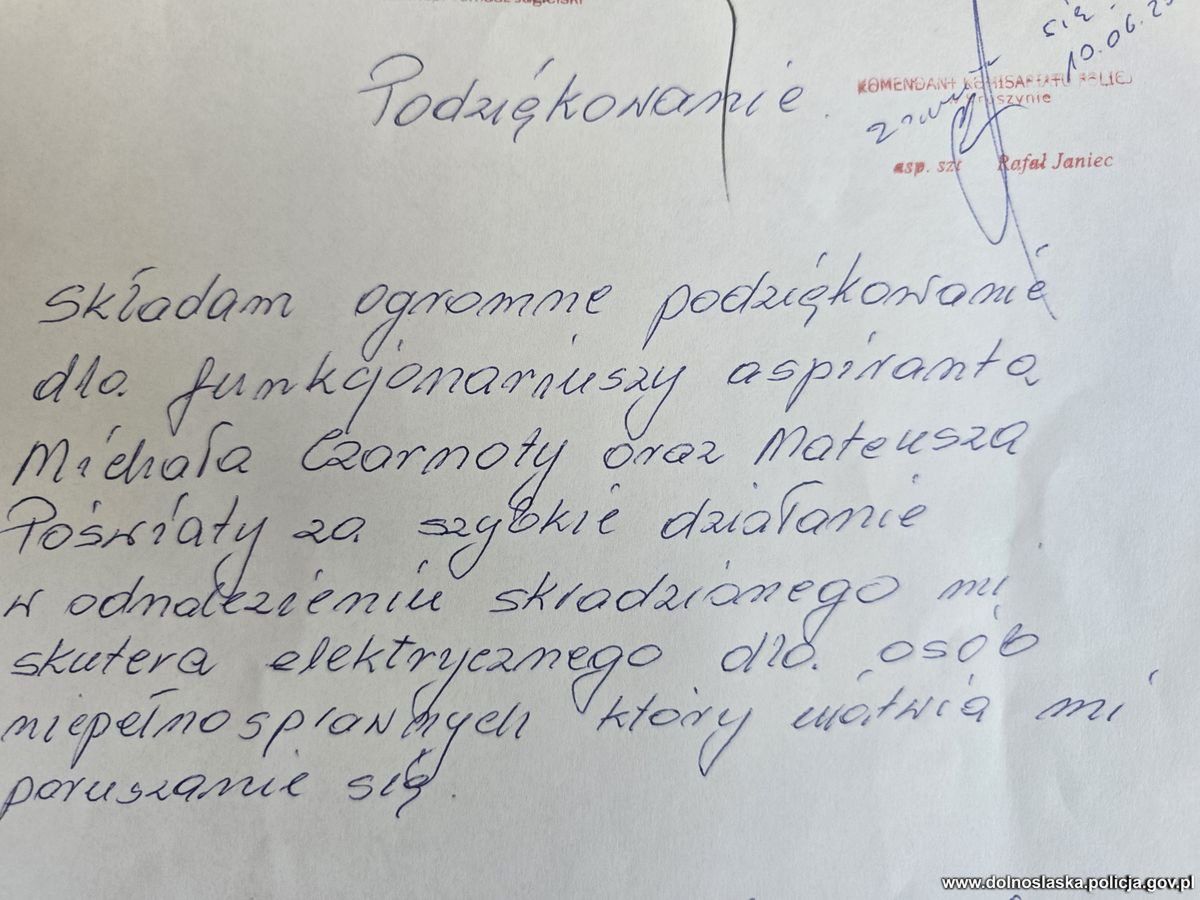 Podziękowanie.
się.
10.06.
KOMENDANT KOMISARIATU POLICJI
asp. szt Rafał Janiec
Składam ogromne podziękowanie
dla funkcjonariuszy aspiranta
Michała Czarnoty oraz Mateusza
Poświaty za szybkie działanie
w odnalezieniu skradzionego mi
skutera elektrycznego dla osób
niepełnosprawnych który ułatwia mi
poruszanie się.
www.dolnoslaska.policja.gov.pl